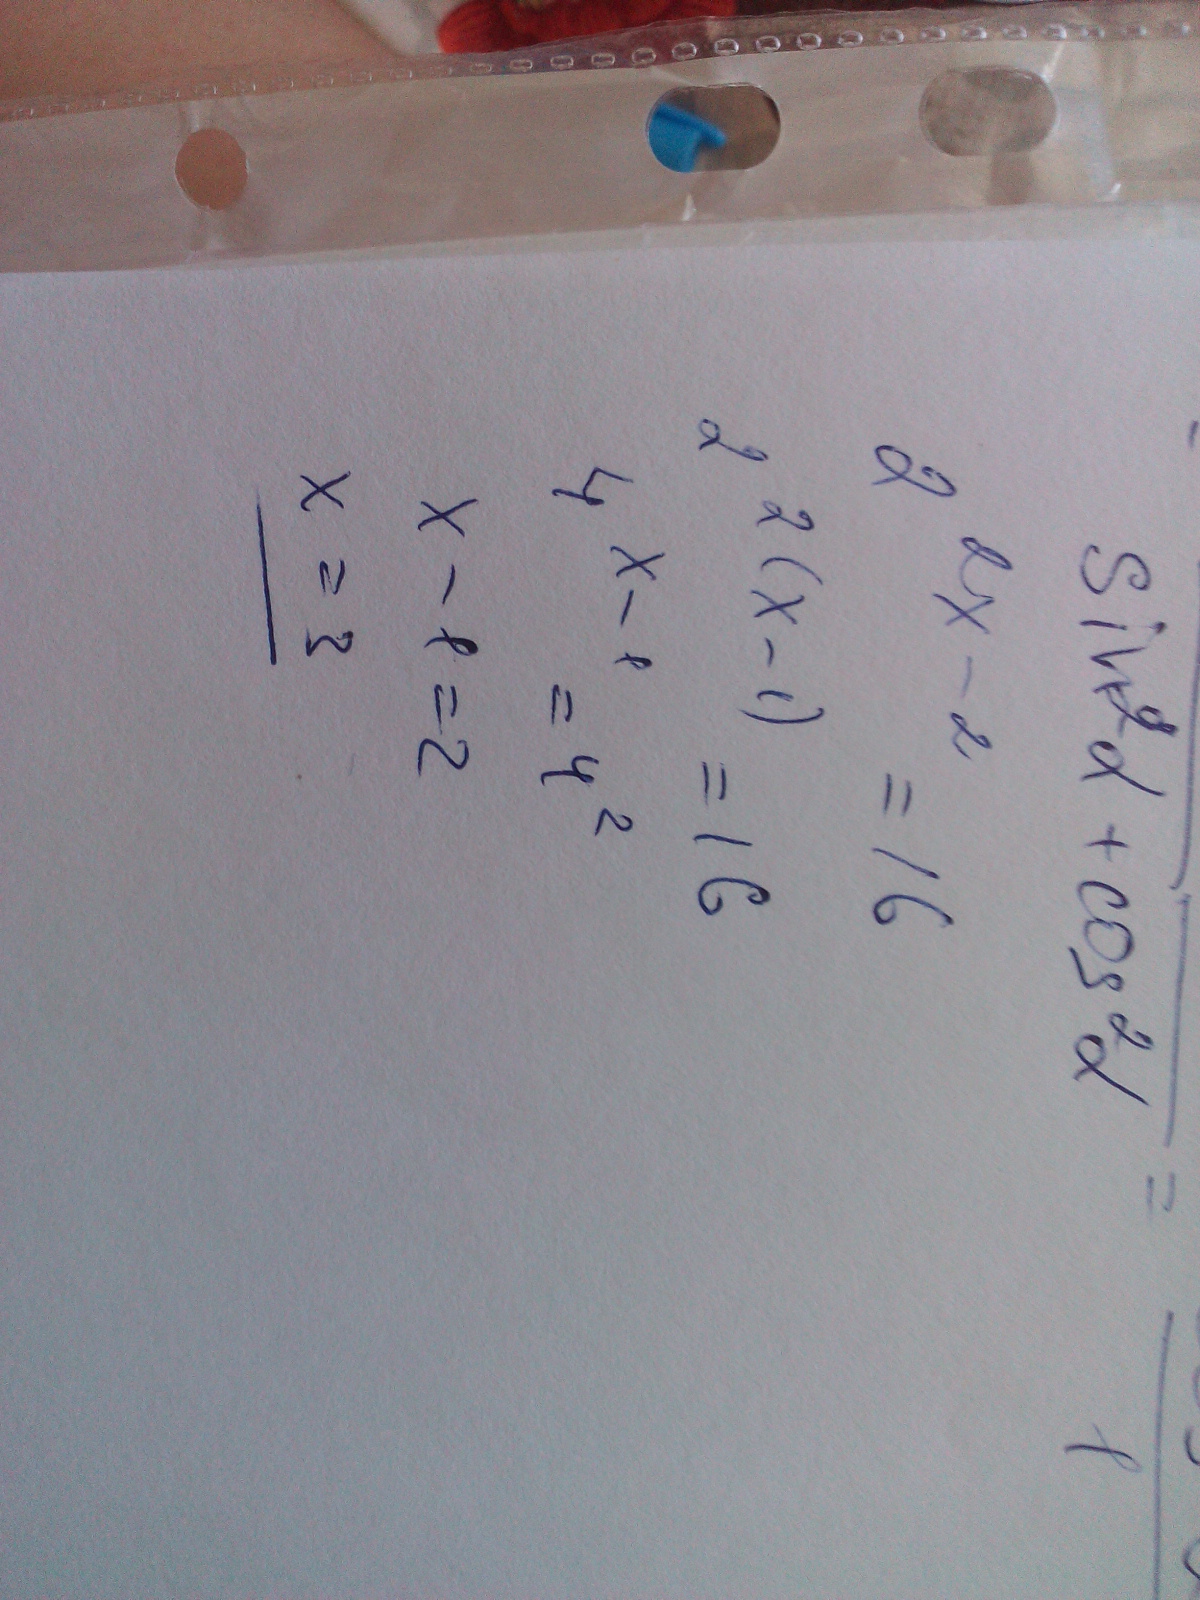 sin²α + cos²α = 1
2^{2x-2} = 16
2^{2(x-1)} = 16
4^{x-1} = 4²
x-1=2
x=3